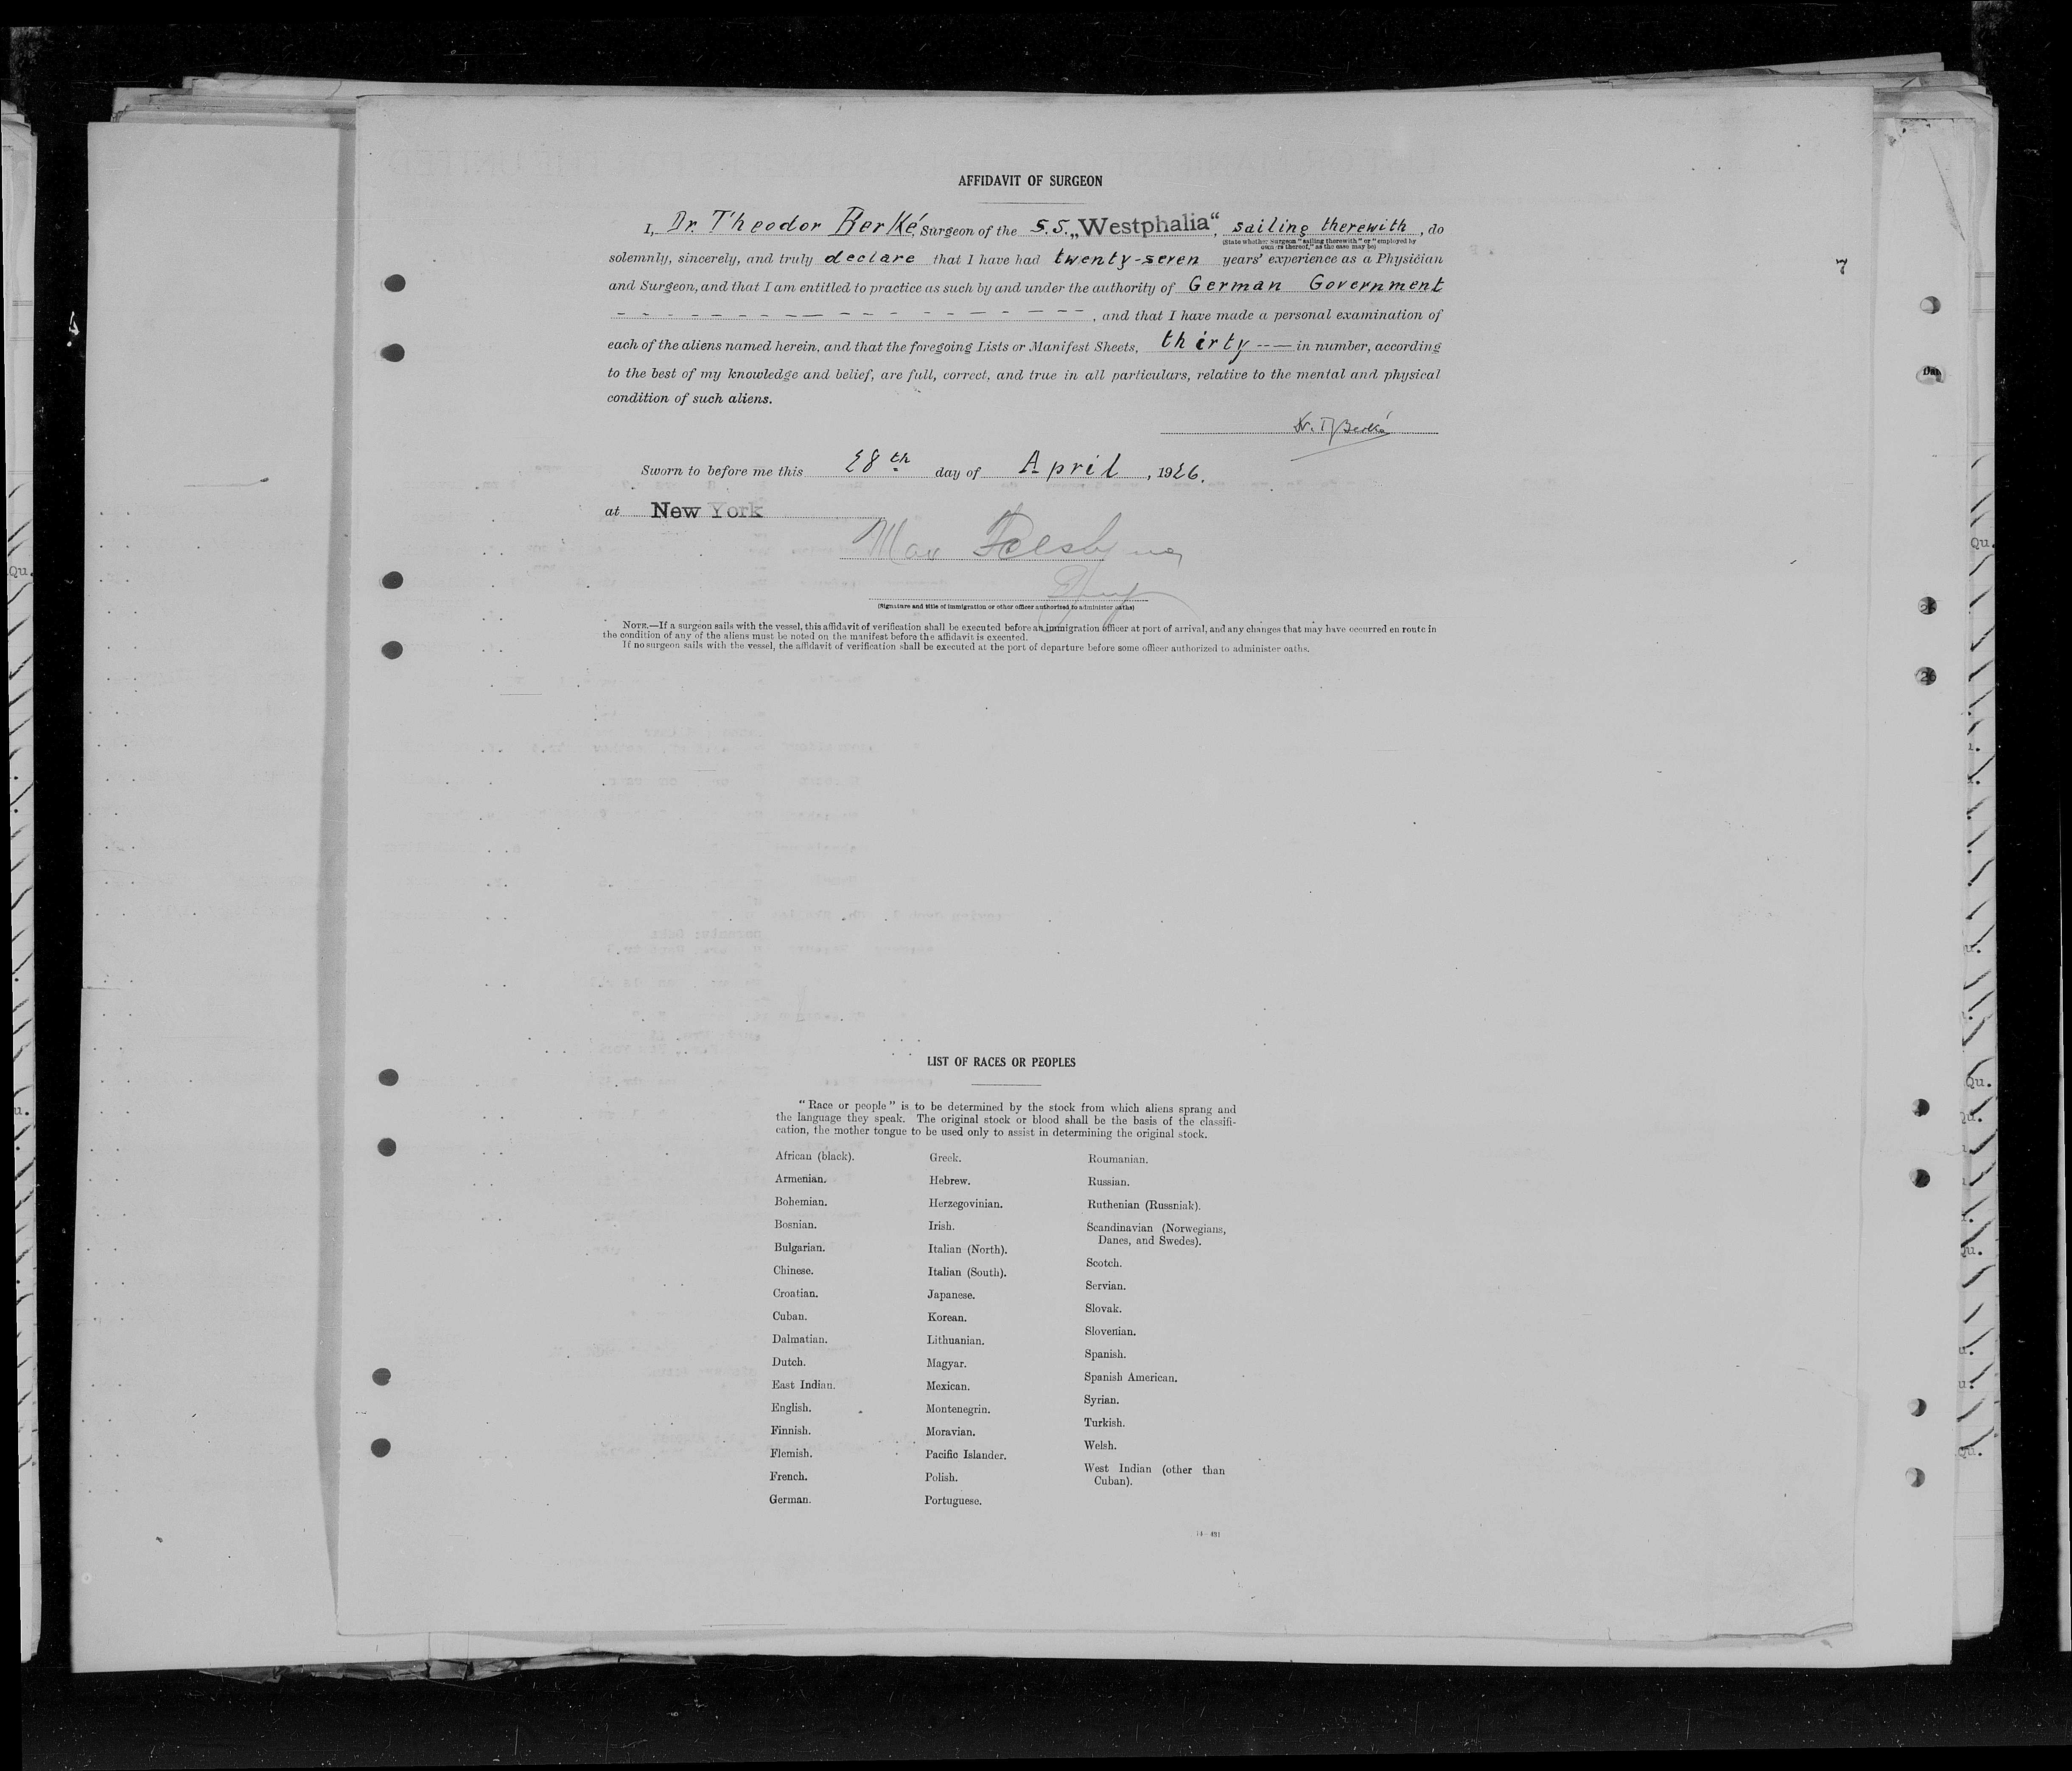 AFFIDAVIT OF SURGEON
I, Dr. Theodor Berké, Surgeon of the S.S. „Westphalia“, sailing therewith, do
(State whether Surgeon "sailing therewith" or "employed by
owners thereof," as the case may be)
solemnly, sincerely, and truly declare that I have had twenty-seven years' experience as a Physician
and Surgeon, and that I am entitled to practice as such by and under the authority of German Government
, and that I have made a personal examination of
each of the aliens named herein, and that the foregoing Lists or Manifest Sheets, thirty in number, according
to the best of my knowledge and belief, are full, correct, and true in all particulars, relative to the mental and physical
condition of such aliens.
Dr. Th Berké
Sworn to before me this 28th day of April, 1926.
at New York
Max
(Signature and title of immigration or other officer authorized to administer oaths)
NOTE.—If a surgeon sails with the vessel, this affidavit of verification shall be executed before an immigration officer at port of arrival, and any changes that may have occurred en route in
the condition of any of the aliens must be noted on the manifest before the affidavit is executed.
If no surgeon sails with the vessel, the affidavit of verification shall be executed at the port of departure before some officer authorized to administer oaths.
LIST OF RACES OR PEOPLES
"Race or people" is to be determined by the stock from which aliens sprang and
the language they speak. The original stock or blood shall be the basis of the classifi-
cation, the mother tongue to be used only to assist in determining the original stock.
African (black).
Armenian.
Bohemian.
Bosnian.
Bulgarian.
Chinese.
Croatian.
Cuban.
Dalmatian.
Dutch.
East Indian.
English.
Finnish.
Flemish.
French.
German.
Greek.
Hebrew.
Herzegovinian.
Irish.
Italian (North).
Italian (South).
Japanese.
Korean.
Lithuanian.
Magyar.
Mexican.
Montenegrin.
Moravian.
Pacific Islander.
Polish.
Portuguese.
Roumanian.
Russian.
Ruthenian (Russniak).
Scandinavian (Norwegians,
Danes, and Swedes).
Scotch.
Servian.
Slovak.
Slovenian.
Spanish.
Spanish American.
Syrian.
Turkish.
Welsh.
West Indian (other than
Cuban).